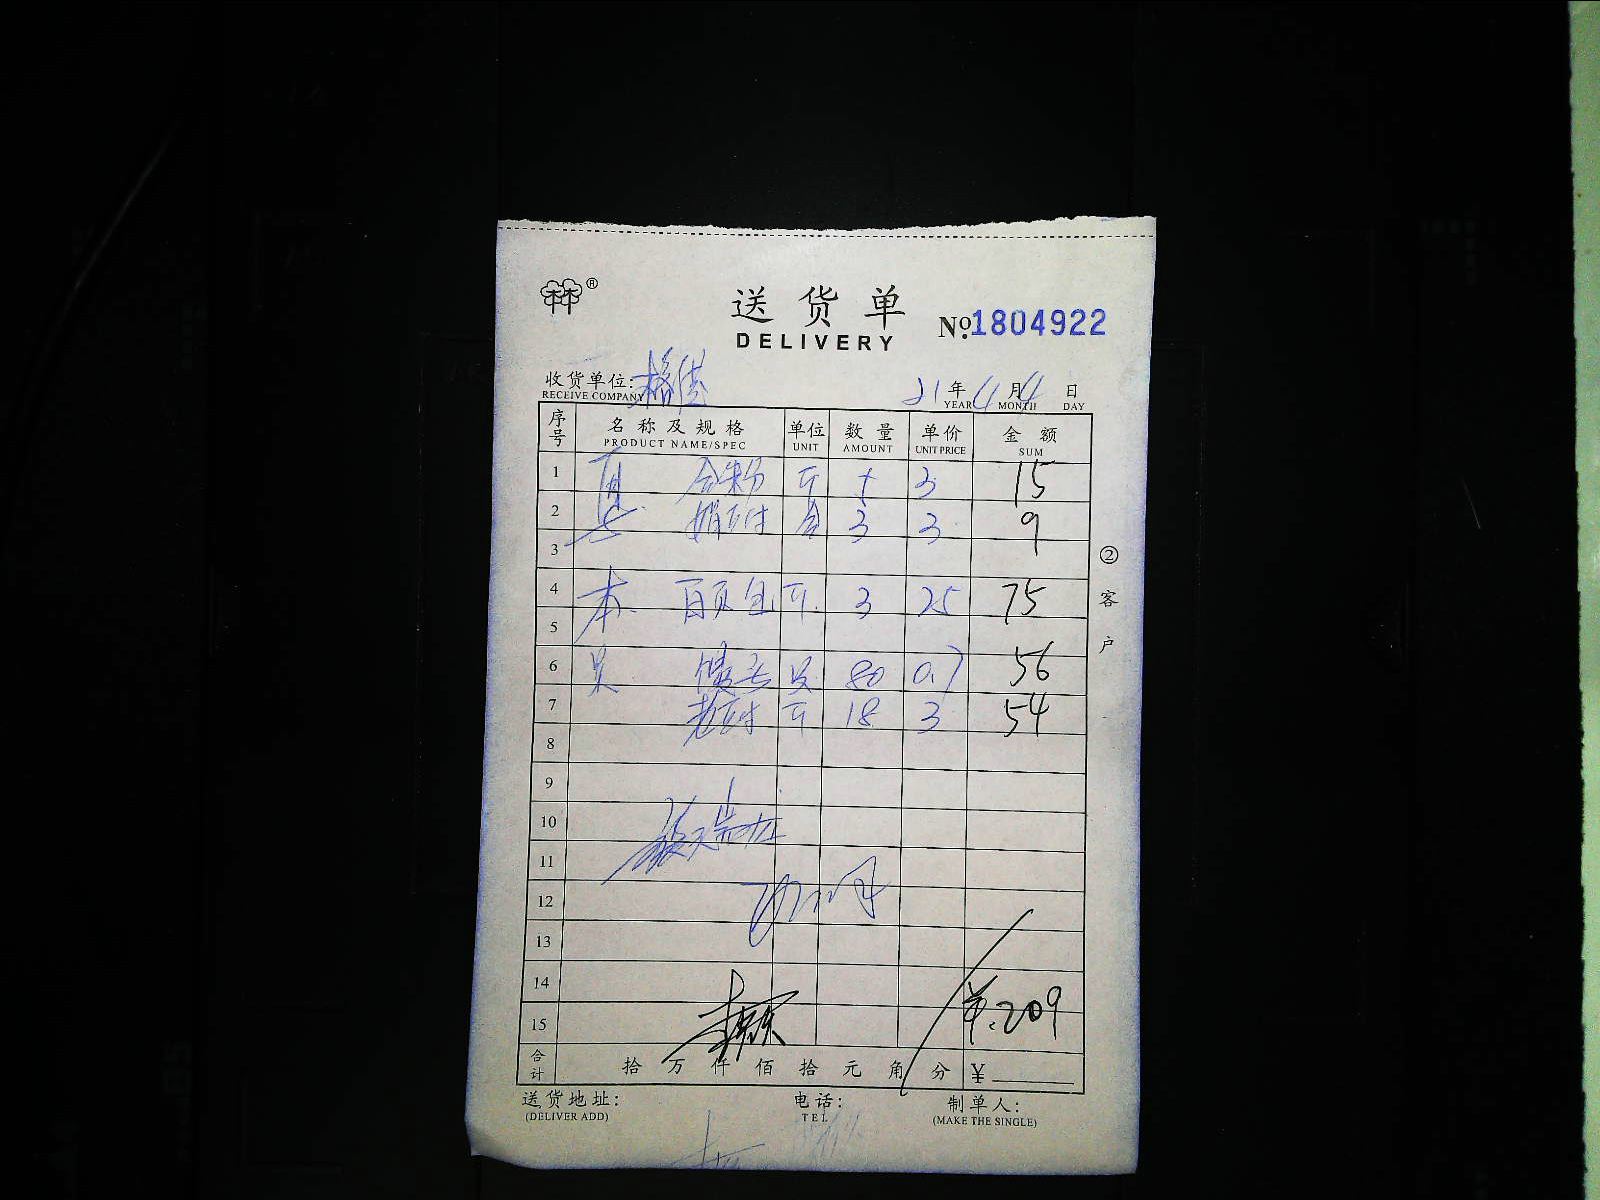 林林®
送货单
DELIVERY
№1804922
收货单位: 21年4月4日
RECEIVE COMPANY YEAR MONTH DAY
序号 名称及规格 单位 数量 单价 金额
PRODUCT NAME/SPEC UNIT AMOUNT UNIT PRICE SUM
1 3 15
2 3 3 9
3
4 本 百页包 3 25 75
5
6 馒头 只 80 0.7 56
7 18 3 54
8
9
10
11
12
13
14
15 ¥.209
合计 拾万仟佰拾元角分 ¥
②客户
送货地址: 电话: 制单人:
(DELIVER ADD) TEL (MAKE THE SINGLE)